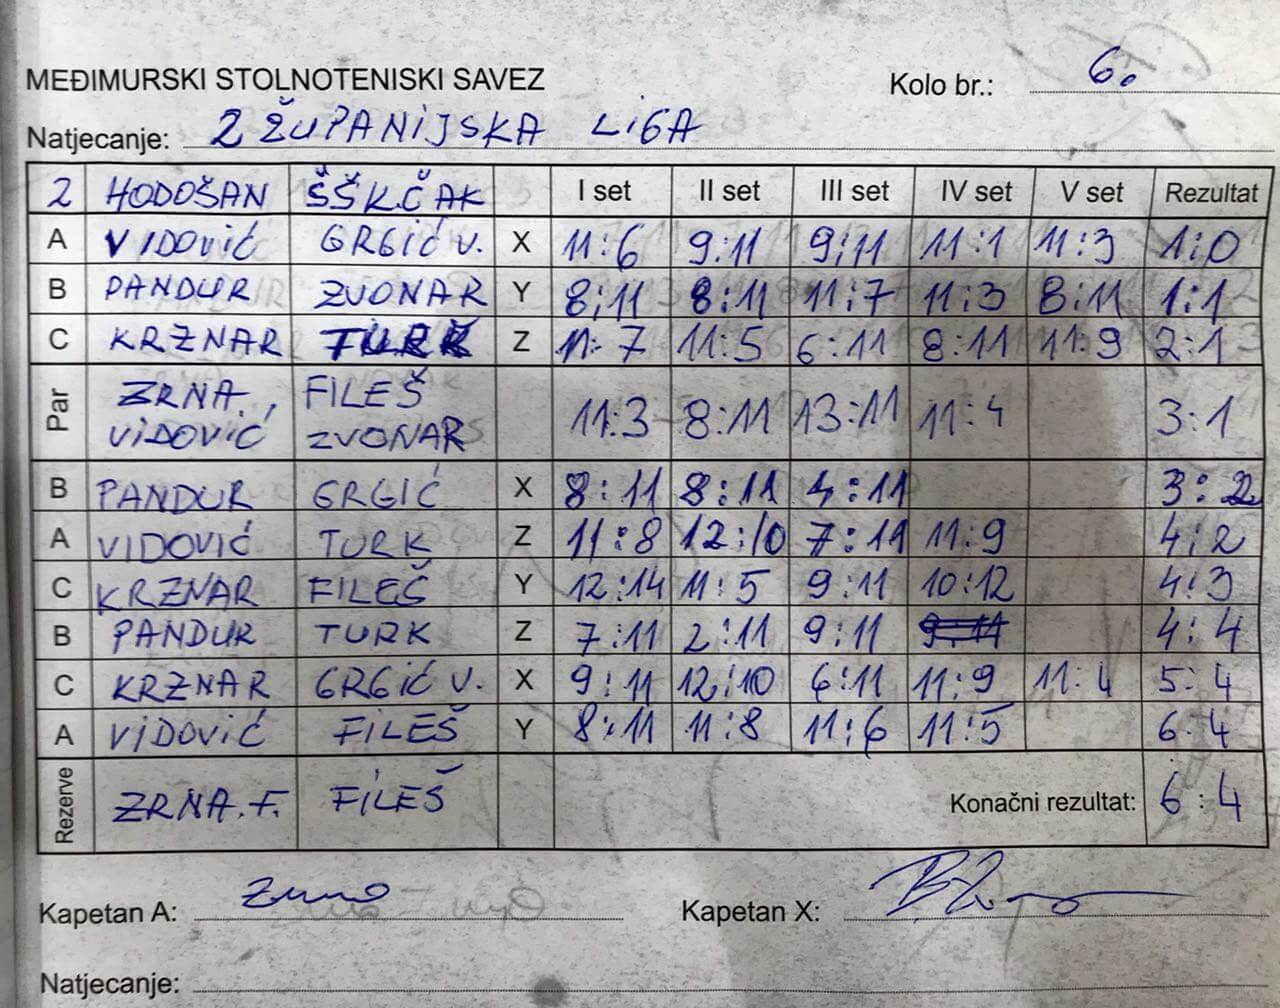 MEĐIMURSKI STOLNOTENISKI SAVEZ Kolo br.: 6.
Natjecanje: 2 ŽUPANIJSKA LIGA
2 HODOŠAN ŠŠKČAK I set II set III set IV set V set Rezultat
A VIDOVIĆ GRGIĆ V. X 11:6 9:11 9:11 11:1 11:3 1:0
B PANDUR ZVONAR Y 8:11 8:11 11:7 11:3 8:11 1:1
C KRZNAR TURK Z 11:7 11:5 6:11 8:11 11:9 2:1
Par ZRNA., FILEŠ 11:3 8:11 13:11 11:4 3:1
VIDOVIĆ ZVONAR
B PANDUR GRGIĆ X 8:11 8:11 4:11 3:2
A VIDOVIĆ TURK Z 11:8 12:10 7:11 11:9 4:2
C KRZNAR FILEŠ Y 12:14 11:5 9:11 10:12 4:3
B PANDUR TURK Z 7:11 2:11 9:11 9:11 4:4
C KRZNAR GRGIĆ V. X 9:11 12:10 6:11 11:9 11:4 5:4
A VIDOVIĆ FILEŠ Y 8:11 11:8 11:6 11:5 6:4
Rezerve ZRNA.F. FILEŠ Konačni rezultat: 6:4
Kapetan A: Kapetan X:
Natjecanje: